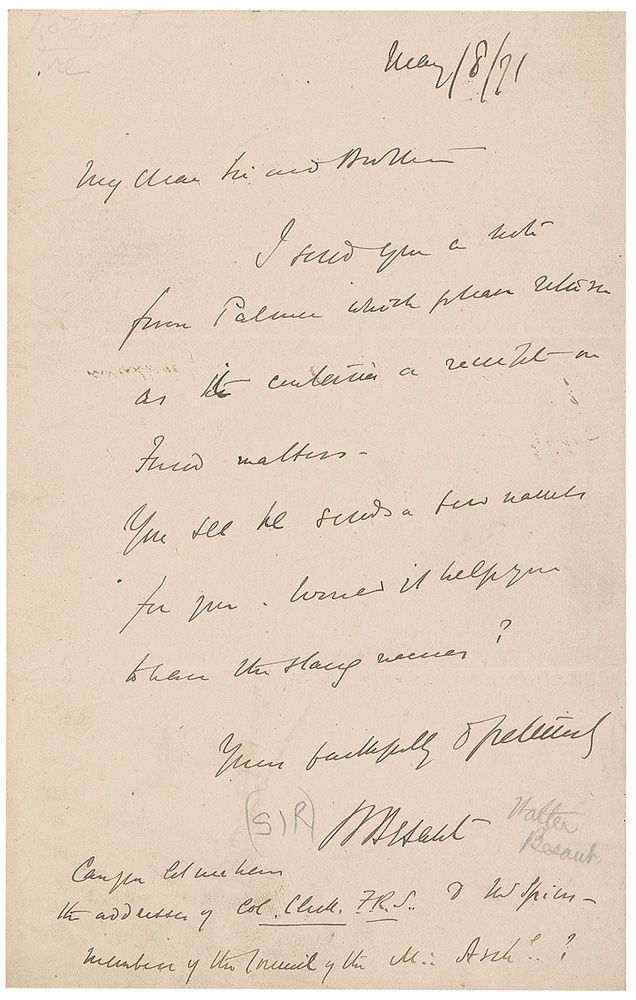 May/8/71
My dear Sir and Brother
I send you a note
from Palmer which please return
as it contains a receipt on
Fund matters.
You see he sends a few names
for you. Would it help you
to have the slang names?
Yours faithfully & fraternally
(SIR) WBesant
Walter
Besant.
Can you let me have
the addresses of Col. Clerk. F.R.S. &
members of the Council of the